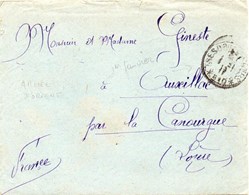 Monsieur et Madame Gineste
à
Auxillac
par la Canourgue
(Lozère)
France